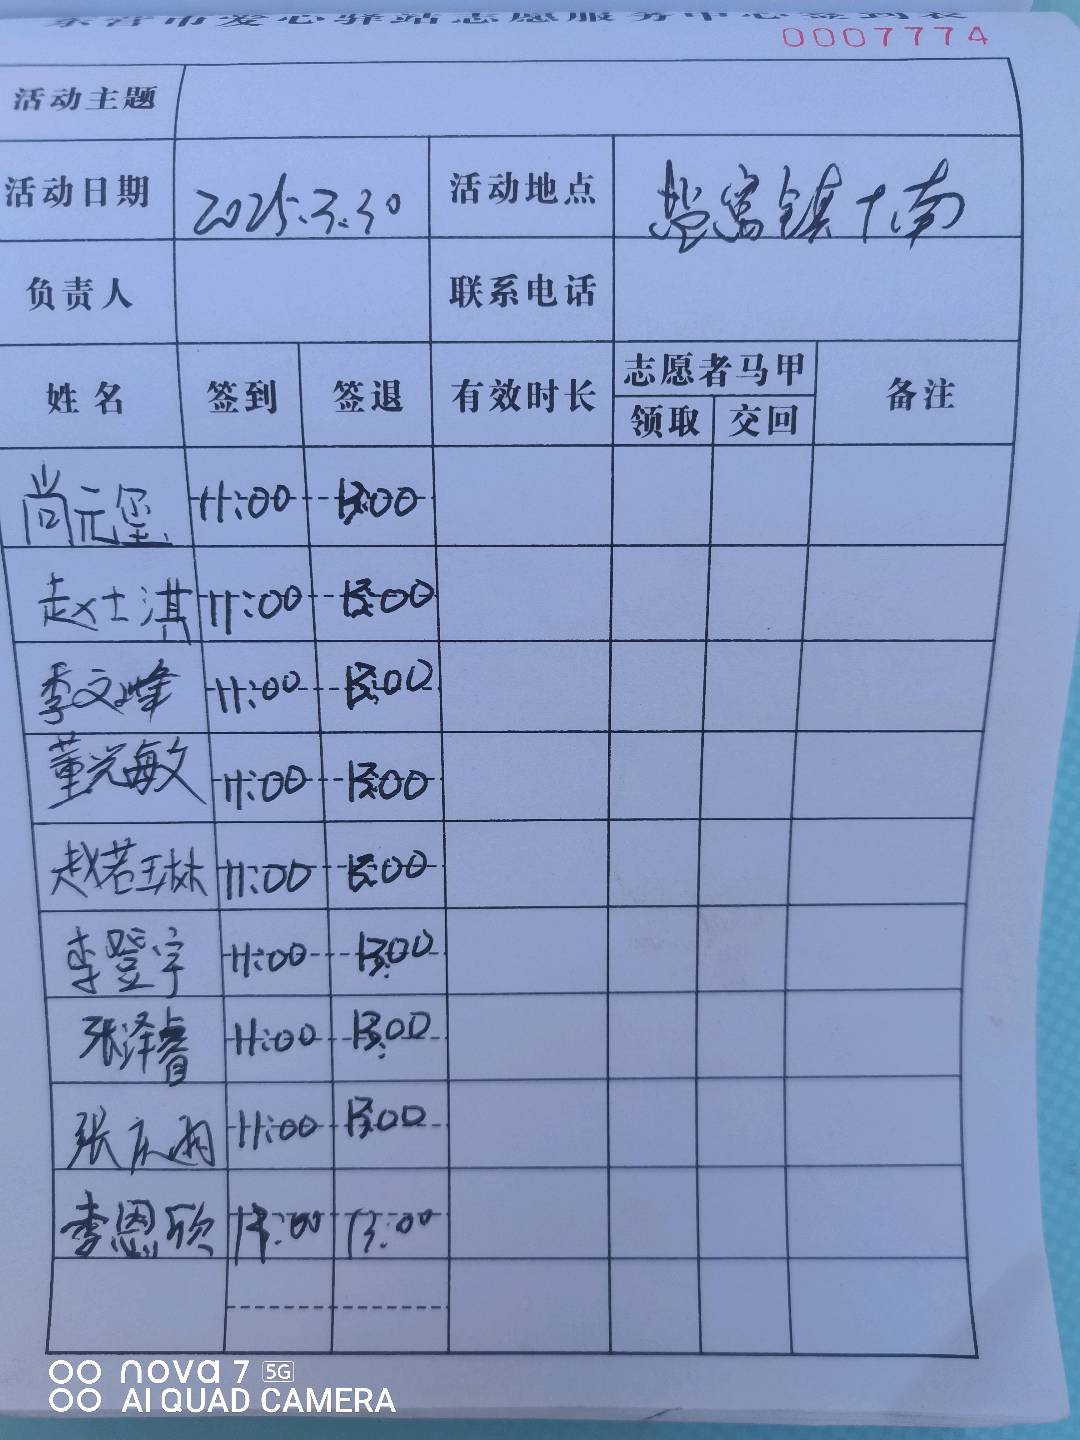 东营市爱心驿站志愿服务中心签到表
0007774
活动主题
活动日期 2025.3.30 活动地点 盐窝镇十南
负责人 联系电话
姓名 签到 签退 有效时长 志愿者马甲 备注
领取 交回
尚元玺 11:00 13:00
赵士淇 11:00 13:00
李文峰 11:00 13:00
董光敏 11:00 13:00
赵若琳 11:00 13:00
李登宇 11:00 13:00
张泽睿 11:00 13:00
张庆雨 11:00 13:00
李恩欣 13:00
nova 7 5G
AI QUAD CAMERA